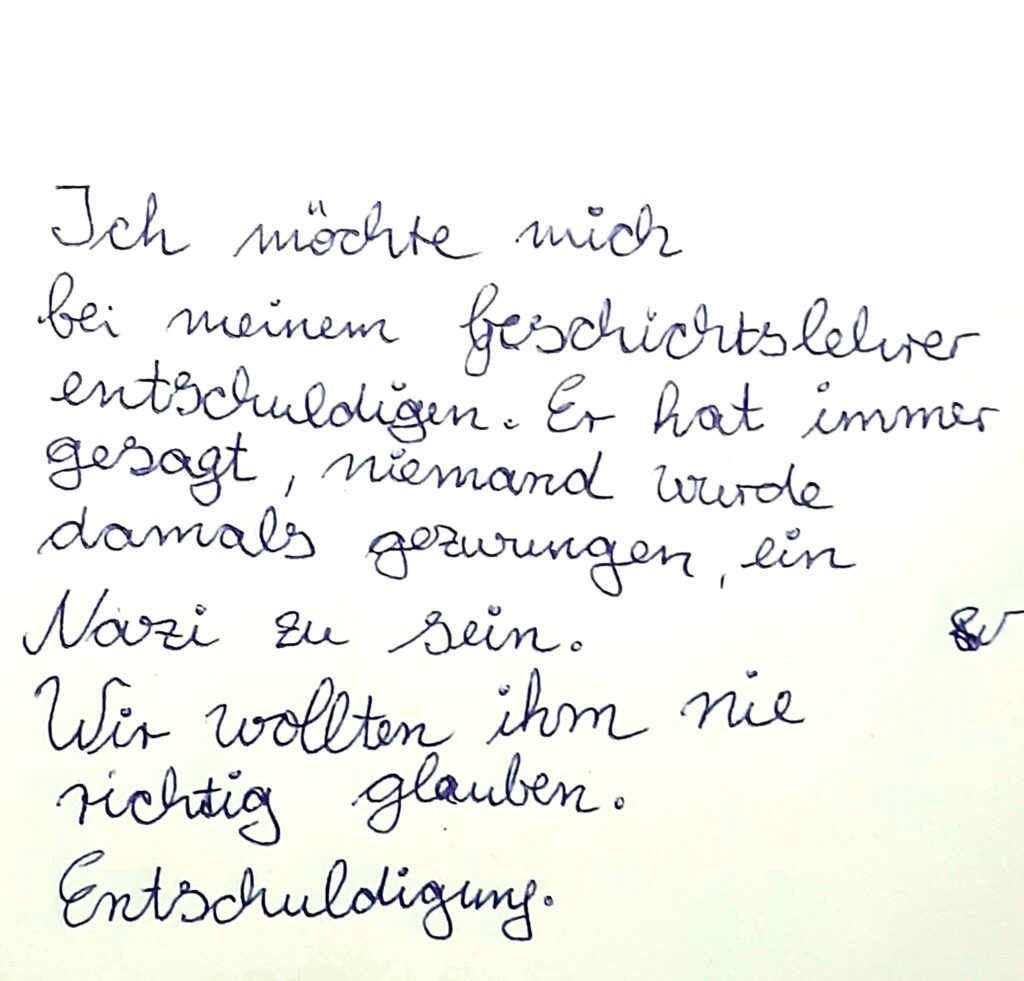 Ich möchte mich
bei meinem Geschichtslehrer
entschuldigen. Er hat immer
gesagt, niemand wurde
damals gezwungen, ein
Nazi zu sein.
Wir wollten ihm nie
richtig glauben.
Entschuldigung.